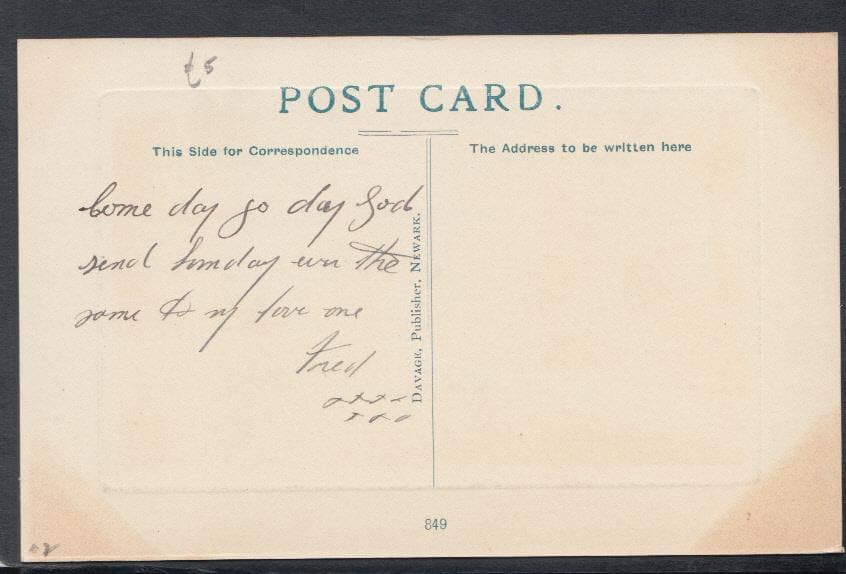 £5
POST CARD.
This Side for Correspondence
The Address to be written here
Come day go day God
send Sunday ever the
same to my love one
Fred
xxxx
xxx
DAVAGE, Publisher, NEWARK.
849